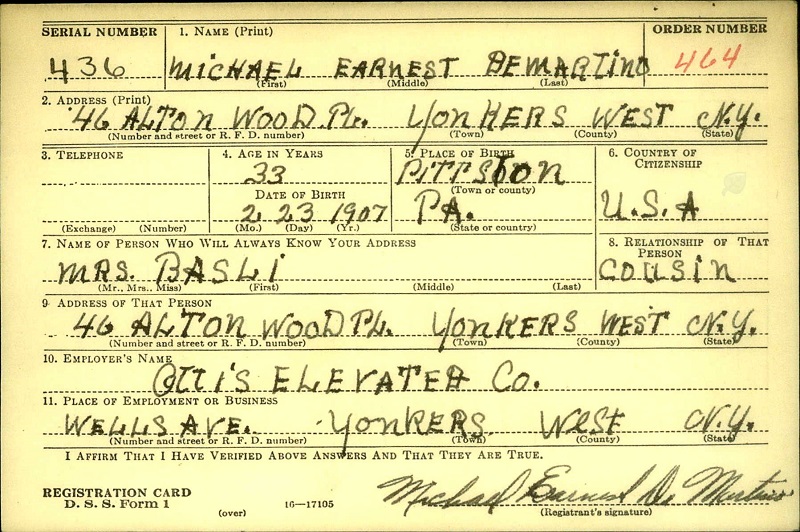 SERIAL NUMBER 1. NAME (Print) ORDER NUMBER
436 MICHAEL EARNEST DEMARTINO 464
(First) (Middle) (Last)
2. ADDRESS (Print)
46 ALTON WOOD PL. YONKERS WEST N.Y.
(Number and street or R. F. D. number) (Town) (County) (State)
3. TELEPHONE 4. AGE IN YEARS 5. PLACE OF BIRTH 6. COUNTRY OF CITIZENSHIP
33 PITTSTON
(Town or county)
DATE OF BIRTH
2 23 1907 PA. U.S.A
(Exchange) (Number) (Mo.) (Day) (Yr.) (State or country)
7. NAME OF PERSON WHO WILL ALWAYS KNOW YOUR ADDRESS 8. RELATIONSHIP OF THAT PERSON
MRS. BASLI COUSIN
(Mr., Mrs., Miss) (First) (Middle) (Last)
9. ADDRESS OF THAT PERSON
46 ALTON WOOD PL. YONKERS WEST N.Y.
(Number and street or R. F. D. number) (Town) (County) (State)
10. EMPLOYER'S NAME
OTTIS ELEVATER CO.
11. PLACE OF EMPLOYMENT OR BUSINESS
WELLS AVE. YONKERS West N.Y.
(Number and street or R. F. D. number) (Town) (County) (State)
I AFFIRM THAT I HAVE VERIFIED ABOVE ANSWERS AND THAT THEY ARE TRUE.
Michael Earnest De Martino
REGISTRATION CARD
D. S. S. Form 1 (over) 16—17105 (Registrant's signature)